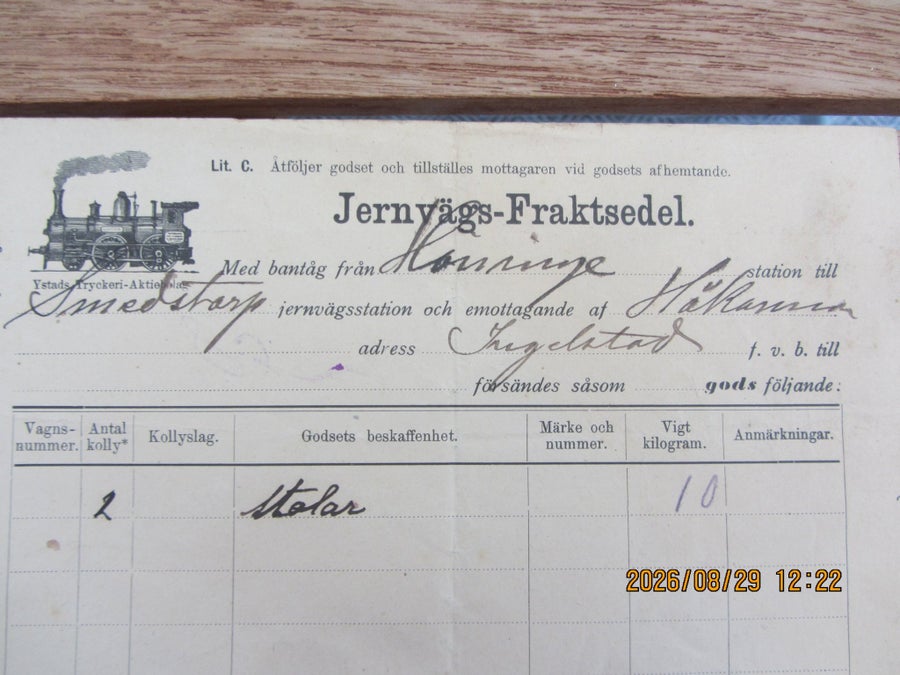 Lit. C. Åtföljer godset och tillställes mottagaren vid godsets afhemtande.
Jernvägs-Fraktsedel.
Ystads Tryckeri-Aktiebolag
Med bantåg från station till
Smedstorp jernvägsstation och emottagande af
adress Ingelstad f. v. b. till
försändes såsom gods följande:
Vagns-nummer. Antal kolly* Kollyslag. Godsets beskaffenhet. Märke och nummer. Vigt kilogram. Anmärkningar.
2 stolar 10
2026/08/29 12:22